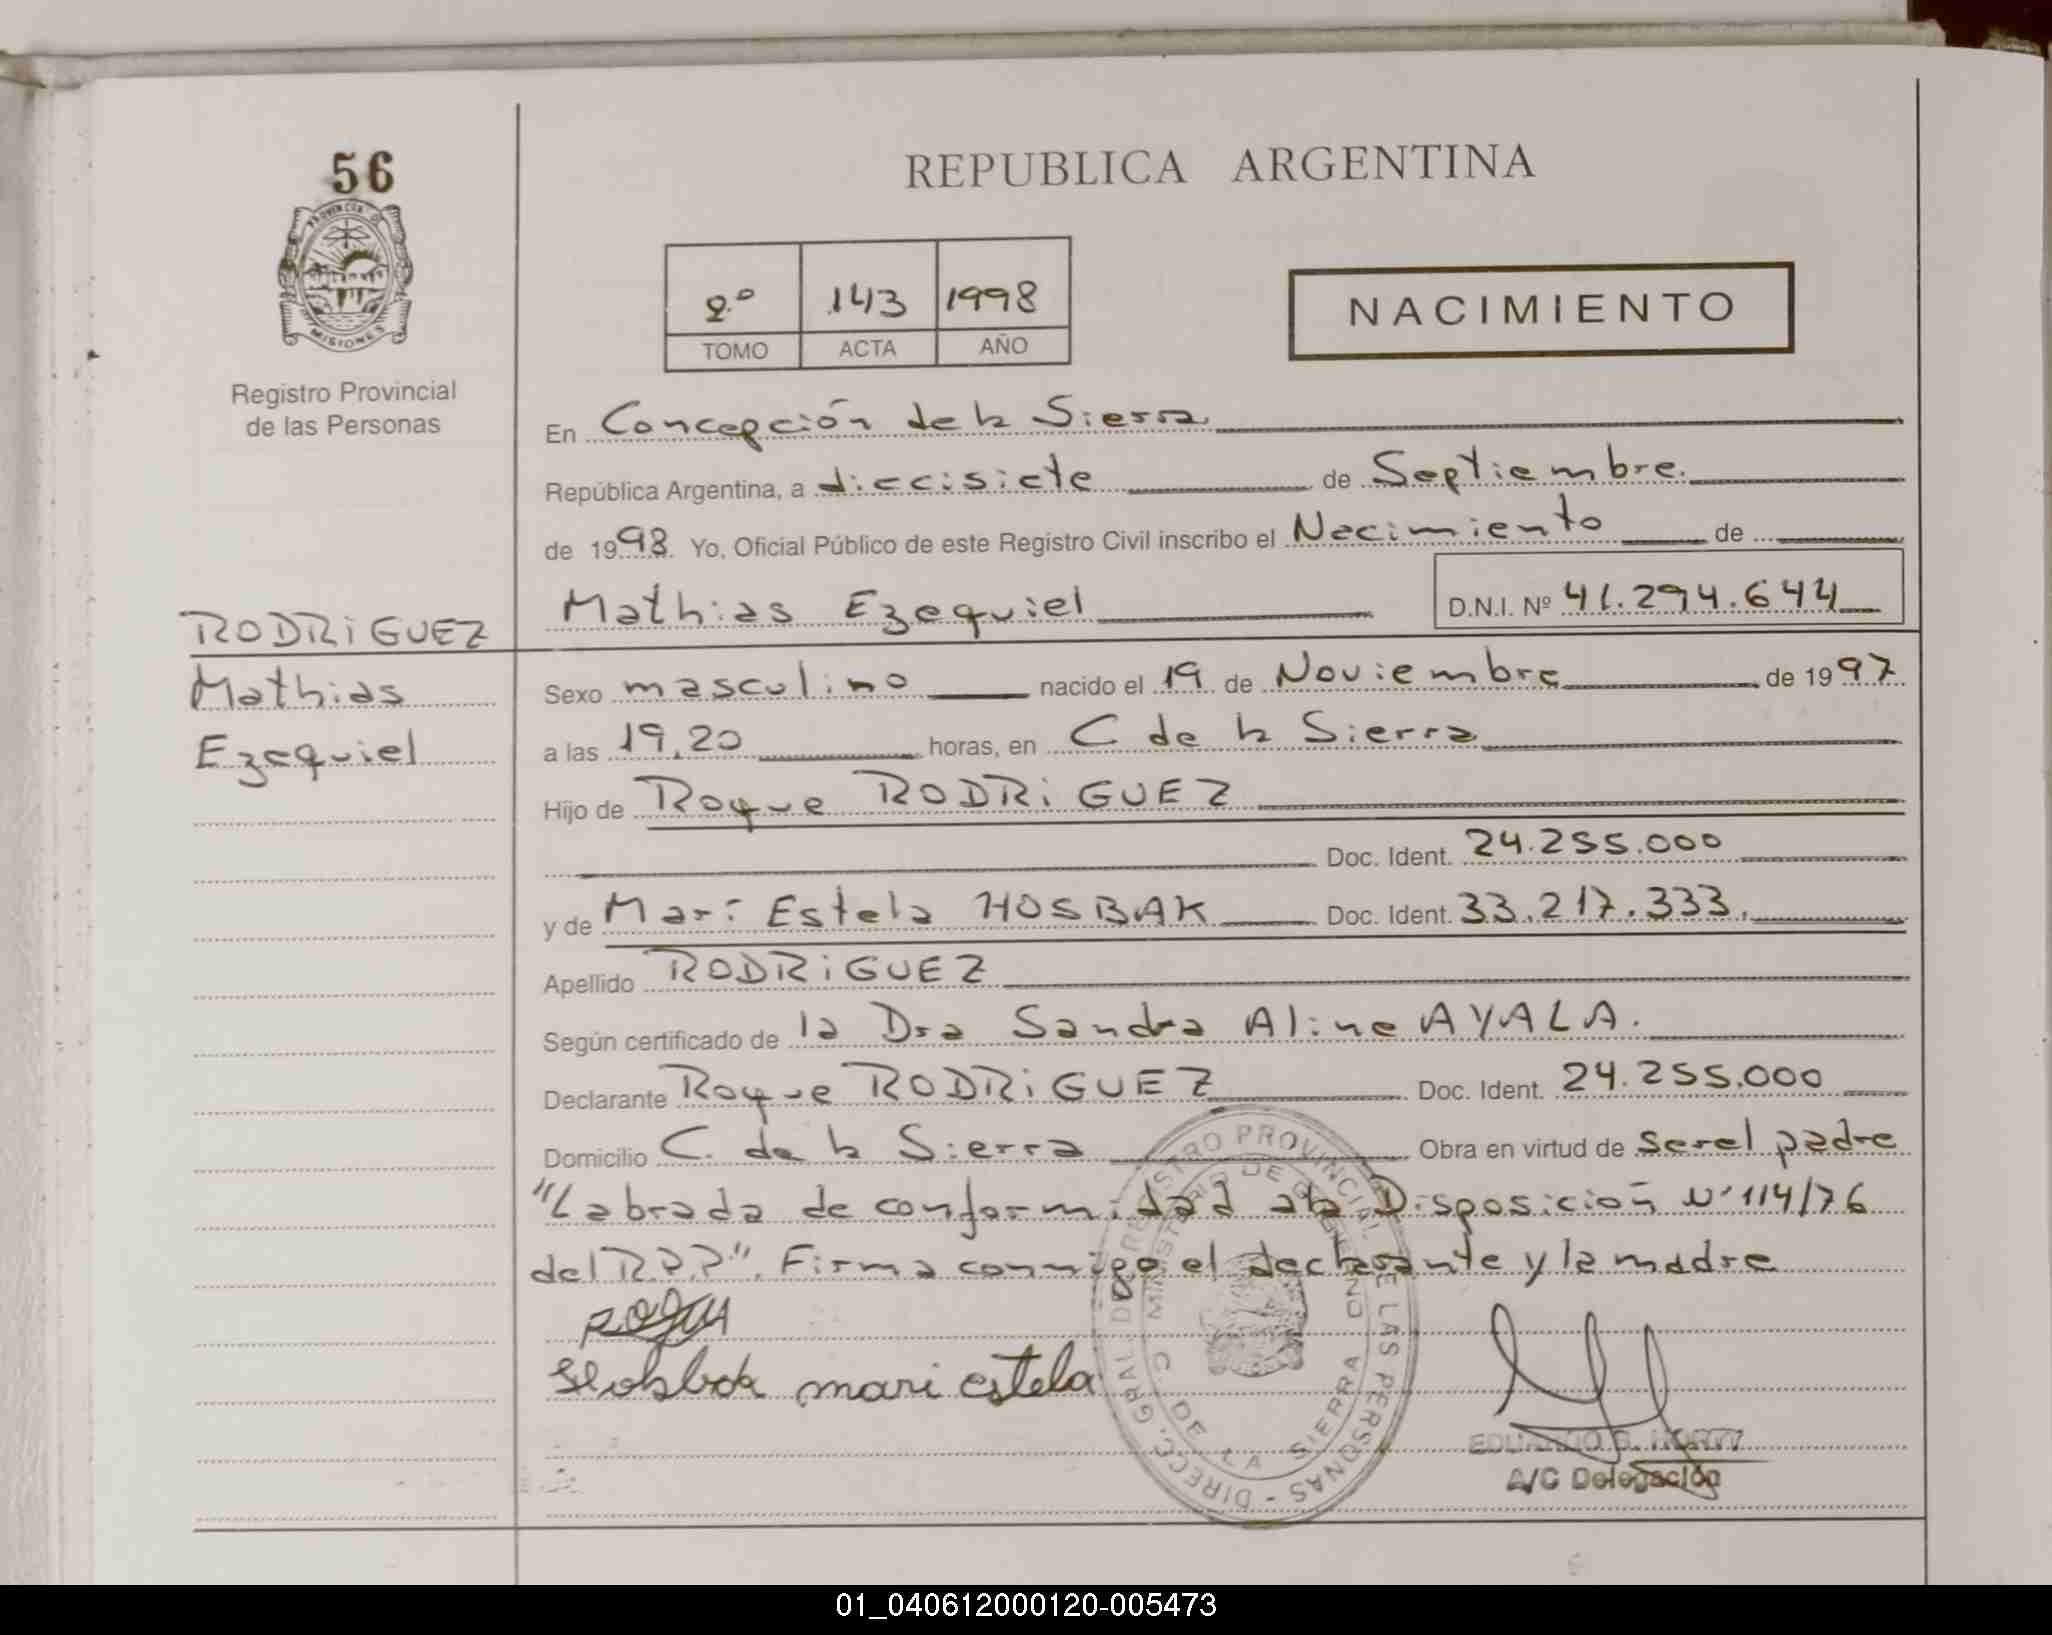 56
PROVINCIA D
MISIONES
Registro Provincial
de las Personas
REPUBLICA ARGENTINA
2º 143 1998
TOMO ACTA AÑO
NACIMIENTO
En Concepción de la Sierra
República Argentina, a diecisiete de Septiembre.
de 1998. Yo, Oficial Público de este Registro Civil inscribo el Nacimiento de
Mathias Ezequiel D.N.I. Nº 41.294.644
RODRiGUEZ
Mathias
Ezequiel
Sexo masculino nacido el 19 de Noviembre de 1997
a las 19,20 horas, en C de la Sierra
Hijo de Roque RODRiGUEZ
Doc. Ident. 24.255.000
y de Mari Estela HOSBAK Doc. Ident. 33.217.333.
Apellido RODRiGUEZ
Según certificado de la Dra Sandra Aline AYALA.
Declarante Roque RODRiGUEZ Doc. Ident. 24.255.000
Domicilio C. de la Sierra Obra en virtud de ser el padre
"Labrada de conformidad a la Disposición Nº 114/76
del R.P.P". Firma conmigo el declarante y la madre
mari estela
DIRECC. GRAL. DE REGISTRO PROVINCIAL DE LAS PERSONAS -
MINISTERIO DE GOBIERNO
C. DE LA SIERRA
EDUARDO
A/C Delegación
01_040612000120-005473